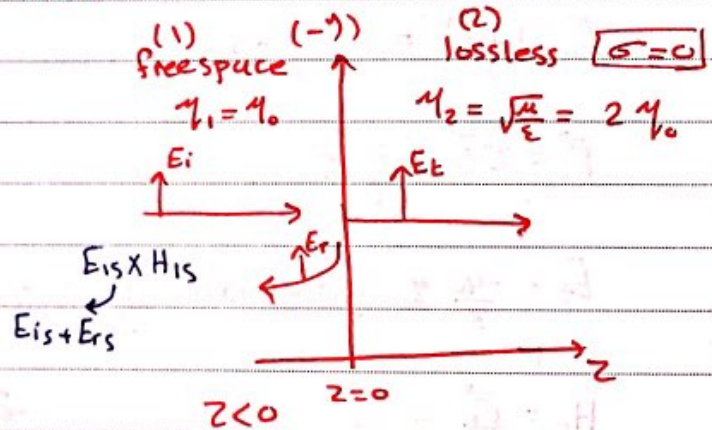 (1) (-y) (2)
free space lossless σ=0
η₁ = η₀ η₂ = √μ/ε = 2 η₀
Ei Et
Er
E1s x H1s
Eis + Ers
z
z<0 z=0